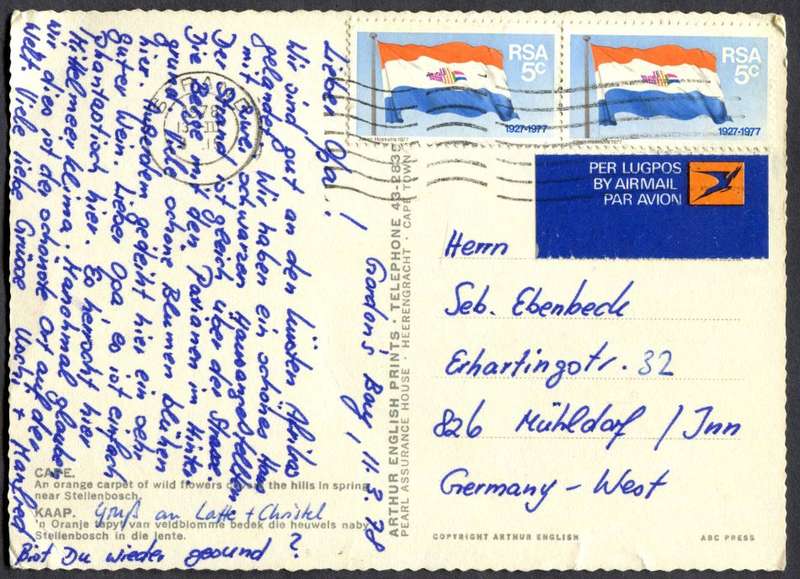 Gordons Bay, 11.3.78
Lieber Opa!
Wir sind gut an den Küsten Afrikas
gelandet. Wir haben ein schönes Haus
mit zwei schwarzen Hausangestellten
Der Strand ist gleich über der Strasse
Die Berge mit den Pavianen im Hinter
grund. Viele schöne Blumen blühen
hier. Außerdem gedeiht hier ein sehr
guter Wein. Lieber Opa es ist einfach
phantastisch hier. Es herrscht hier
Mittelmeerklima. Manchmal glauben
wir dies ist der schönste Ort auf der
Welt. Viele liebe Grüsse Uschi + Manfred
Gruß an Lotte + Christel
Bist Du wieder gesund?
CAPE.
An orange carpet of wild flowers the hills in spring
near Stellenbosch.
KAAP.
'n Oranje tapyt van veldblomme bedek die heuwels naby
Stellenbosch in die lente.
ARTHUR ENGLISH PRINTS · TELEPHONE 43-283
PEARL ASSURANCE HOUSE · HEERENGRACHT · CAPE TOWN
RSA
5c
1927-1977
RSA
5c
1927-1977
PER LUGPOS
BY AIRMAIL
PAR AVION
Herrn
Seb. Ebenbeck
Erhartingstr. 32
826 Mühldorf / Inn
Germany - West
COPYRIGHT ARTHUR ENGLISH
ABC PRESS